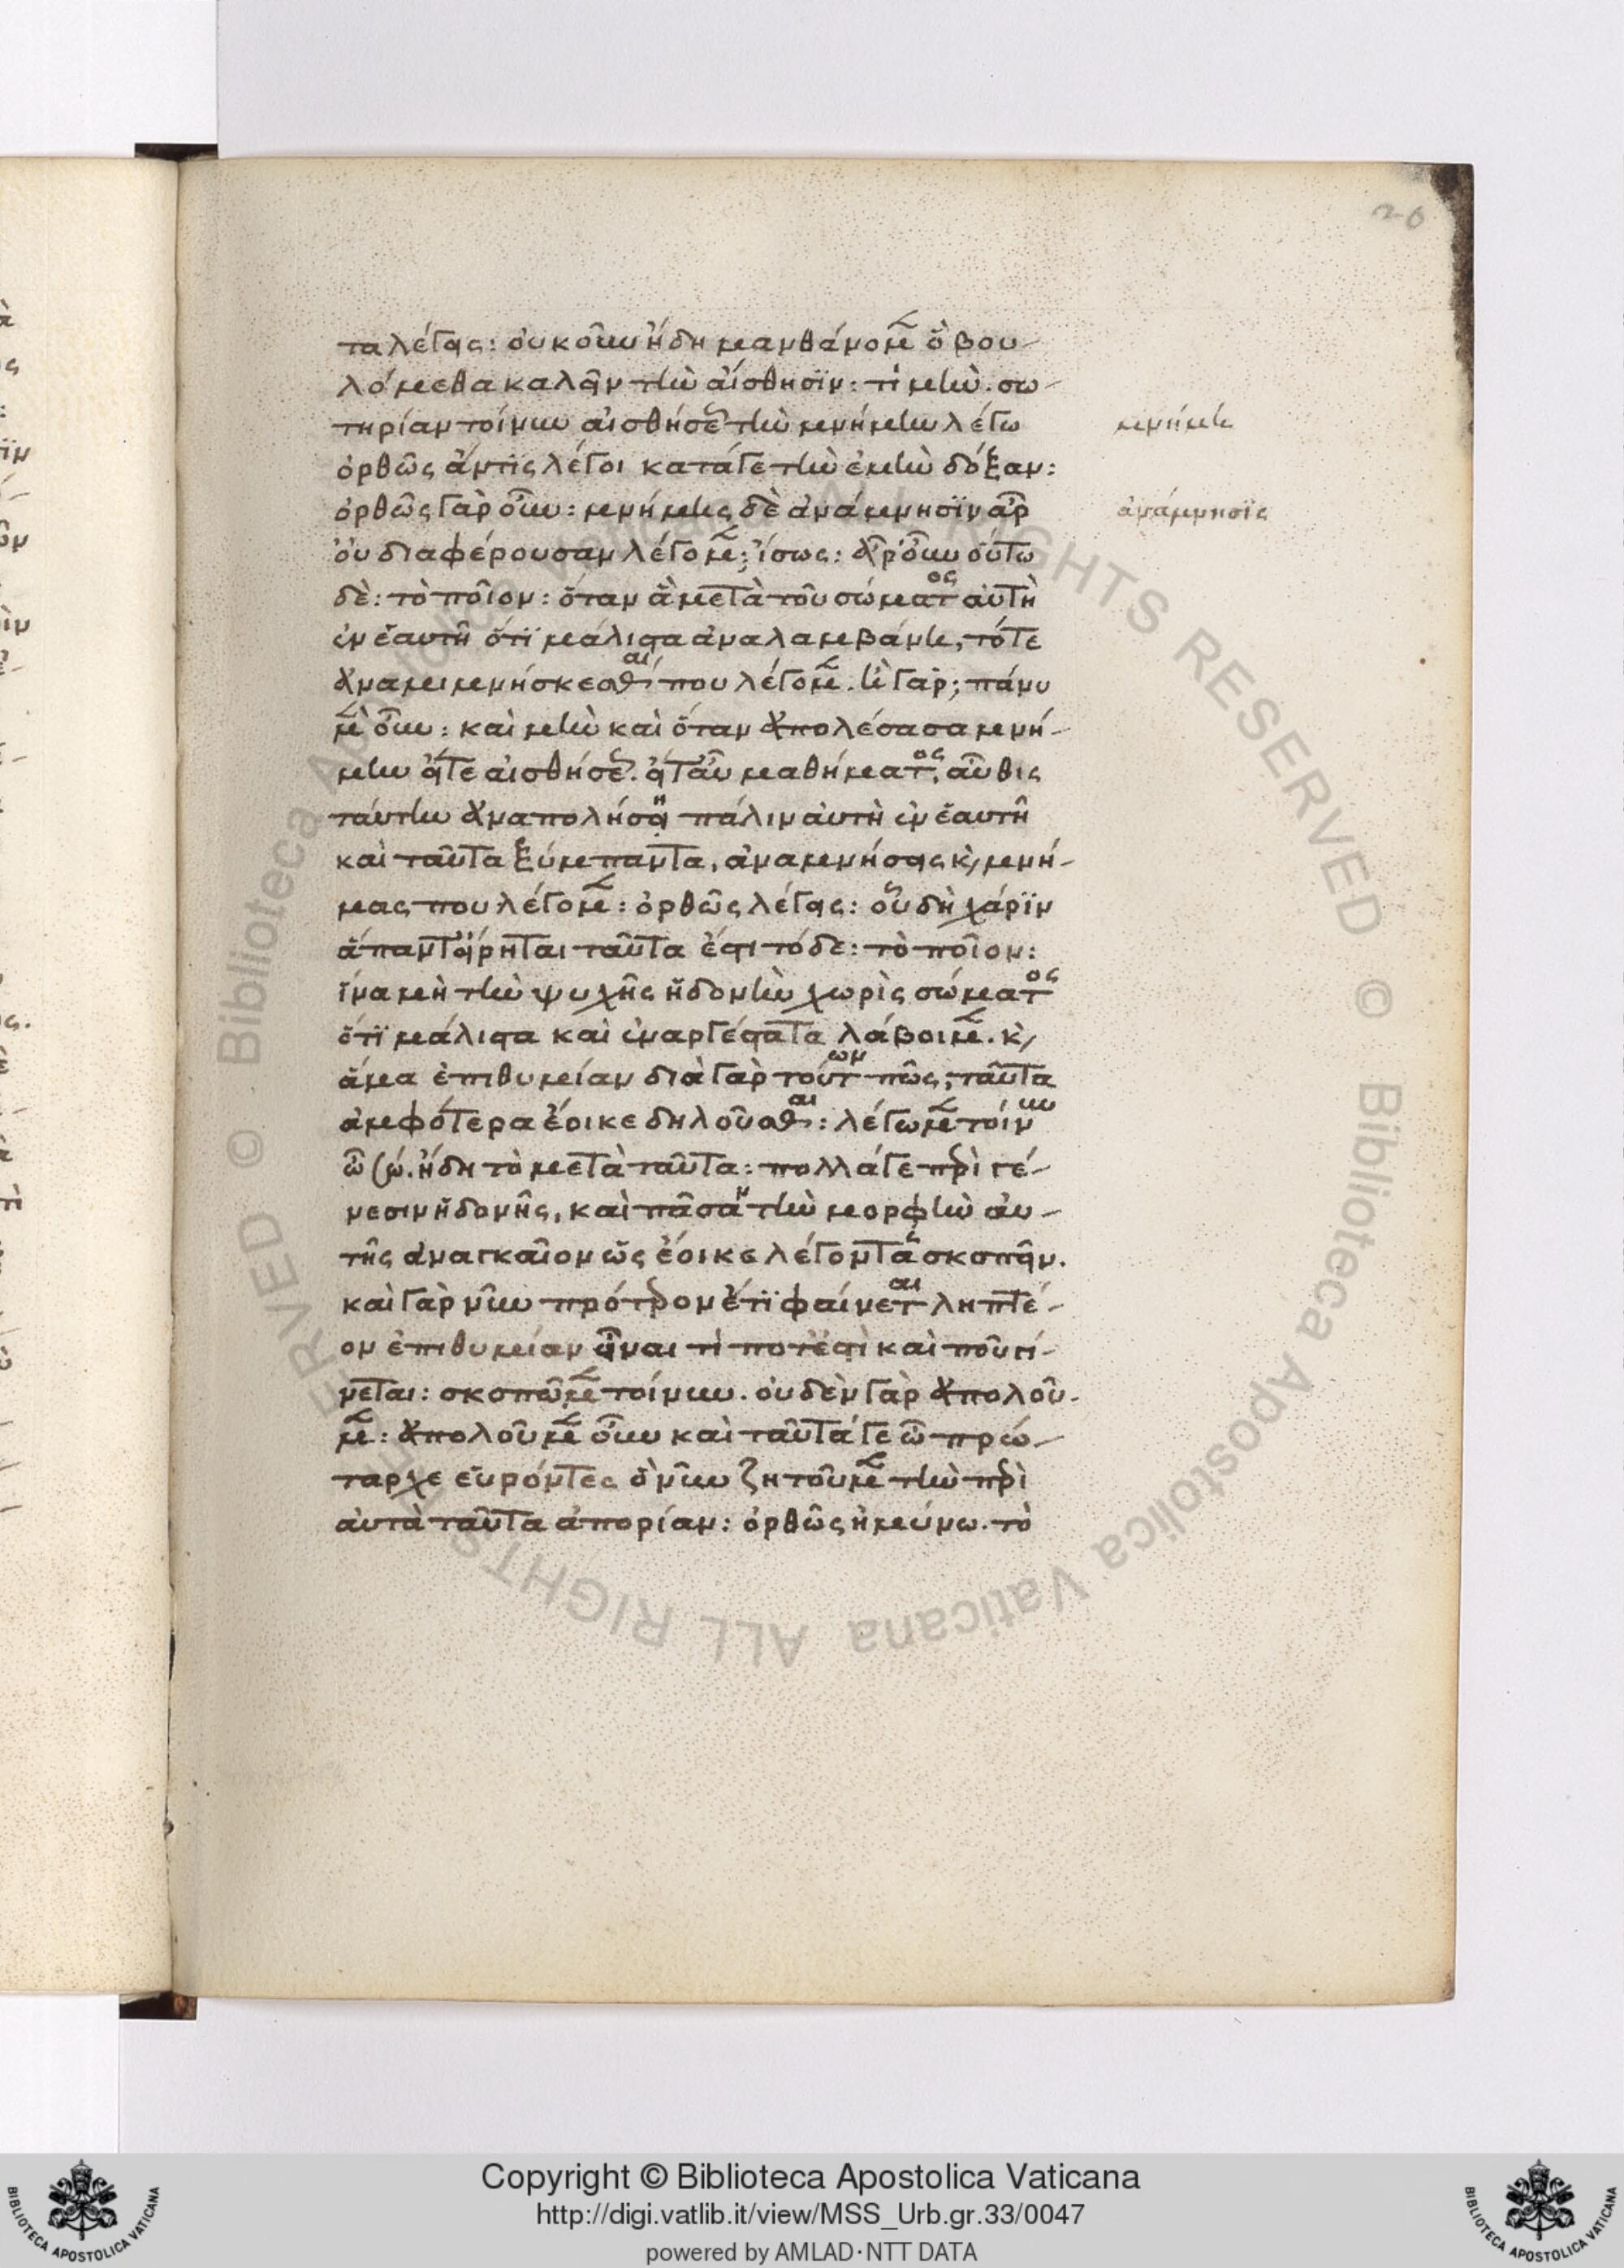 26
τα λέγεις: οὐκοῦν ἤδη μανθάνομεν ὃ βου-
λόμεθα καλεῖν τὴν αἴσθησϊν: τί μήν. σω-
τηρίαν τοίνυν αἰσθήσεως τὴν μνήμην λέγω
ὀρθῶς ἄν τις λέγοι κατά γε τὴν ἐμὴν δόξαν:
ὀρθῶς γὰρ οὖν: μνήμης δὲ ἀνάμνησϊν ἆρ
οὐ διαφέρουσαν λέγομεν; ἴσως: ἆρ οὖν οὐ τω
δὲ: τὸ ποῖον: ὅταν ἃ μετὰ τοῦ σώματος αὐτὴ
ἐν ἑαυτῆ ὅτϊ μάλιστα ἀναλαμβάνη, τότε
ἀναμιμνήσκεσθαί που λέγομεν. ἦ γάρ; πάνυ
μὲν οὖν: καὶ μὴν καὶ ὅταν ἀπολέσασα μνή-
μην εἴτε αἰσθήσεως. εἴτ αὖ μαθήματος, αὖθις
ταύτην ἀναπολήση πάλιν αὐτὴ ἐν ἑαυτῆ
καὶ ταῦτα ξύμπαντα, ἀναμνήσεις καὶ μνή-
μας που λέγομεν: ὀρθῶς λέγεις: οὗ δὴ χάρϊν
ἅπαντ εἴρηται ταῦτα ἔστι τόδε: τὸ ποῖον:
ἵνα μὴ τὴν ψυχῆς ἡδονὴν χωρὶς σώματος
ὅτϊ μάλιστα καὶ ἐναργέστατα λάβοιμεν. καὶ
ἅμα ἐπιθυμίαν διὰ γὰρ τούτων πῶς, ταῦτα
ἀμφότερα ἔοικε δηλοῦσθαι: λέγωμεν τοίνυν
ὦ σώ. ἤδη τὸ μετὰ ταῦτα: πολλά γε περὶ γέ-
νεσιν ἡδονῆς, καὶ πᾶσαν τὴν μορφὴν αὐ-
τῆς ἀναγκαῖον ὡς ἔοικε λέγοντας σκοπεῖν.
καὶ γὰρ νῦν πρότερον ἔτϊ φαίνεται ληπτέ-
ον ἐπιθυμίαν εἶναι τί ποτ ἔστι καὶ ποῦ γί-
νεται: σκοπῶμεν τοίνυν. οὐδὲν γὰρ ἀπολοῦ-
μεν: ἀπολοῦμεν οὖν καὶ ταῦτά γε ὦ πρώ-
ταρχε εὑρόντες ὃ νῦν ζητοῦμεν τὴν περὶ
αὐτὰ ταῦτα ἀπορίαν: ὀρθῶς ἠμύνω. τὸ
μνήμη
ἀνάμνησϊς
Copyright © Biblioteca Apostolica Vaticana
http://digi.vatlib.it/view/MSS_Urb.gr.33/0047
powered by AMLAD·NTT DATA
BIBLIOTECA APOSTOLICA VATICANA
BIBLIOTECA APOSTOLICA VATICANA
© Biblioteca Apostolica Vaticana ALL RIGHTS RESERVED © Biblioteca Apostolica Vaticana ALL RIGHTS RESERVED